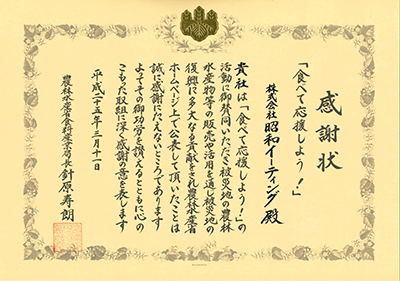 感謝状
「食べて応援しよう！」
株式会社 昭和イーティング 殿
貴社は「食べて応援しよう！」の
活動に御賛同いただき被災地の農林
水産物等の販売や活用を通し被災地の
復興に多大なる貢献をされ農林水産省
ホームページ上で公表して頂いたことは
誠に感謝にたえないところであります
よってその御功労を讃えるとともに心の
こもった取組に深く感謝の意を表します
平成二十五年三月十一日
農林水産省食料産業局長 針原寿朗